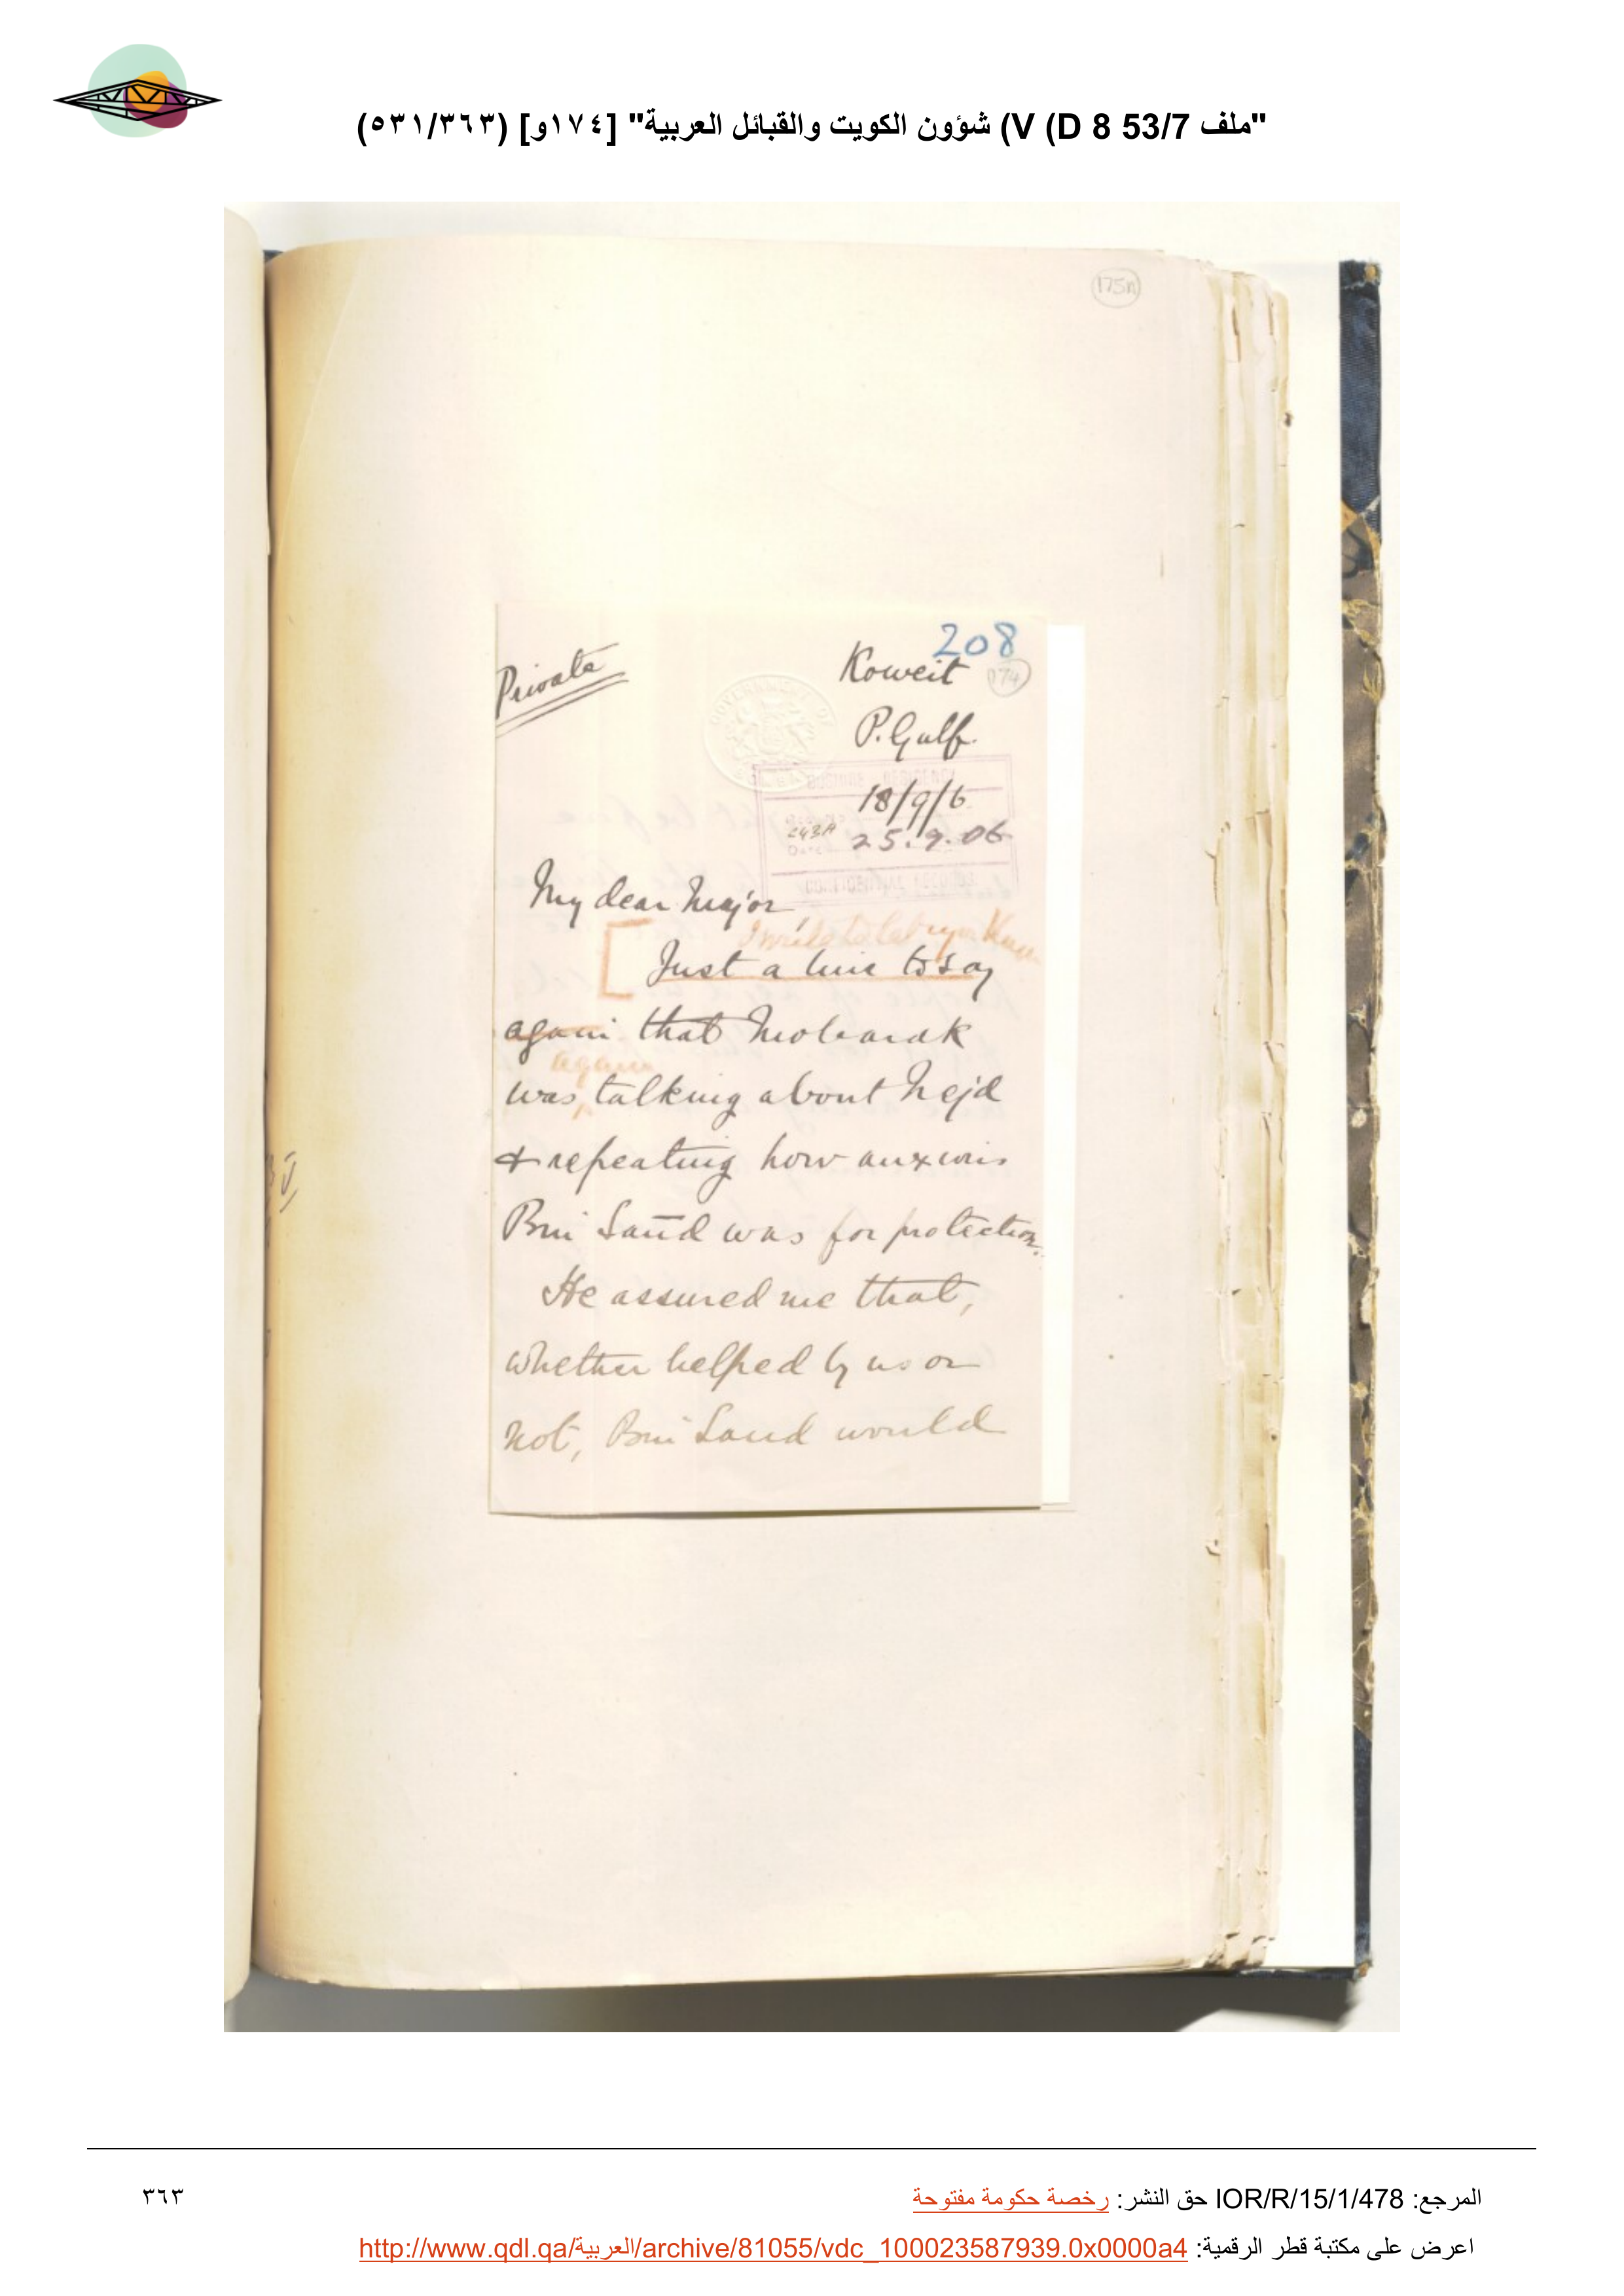 "ملف 53/7 V (D 8) شؤون الكويت والقبائل العربية" [١٧٤و] (٥٣١/٣٦٣)
208
Private
Koweit
174
P. Gulf.
18/9/6
25.9.06
CONFIDENTIAL RECORDS
My dear Major,
I write to let you know
Just a line to say
again that Mobarak
again
was, talking about Nejd
& repeating how anxious
Bin Saūd was for protection.
He assured me that,
whether helped by us or
not, Bin Saud would
المرجع: IOR/R/15/1/478 حق النشر: رخصة حكومة مفتوحة
٣٦٣
اعرض على مكتبة قطر الرقمية: http://www.qdl.qa/العربية/archive/81055/vdc_100023587939.0x0000a4